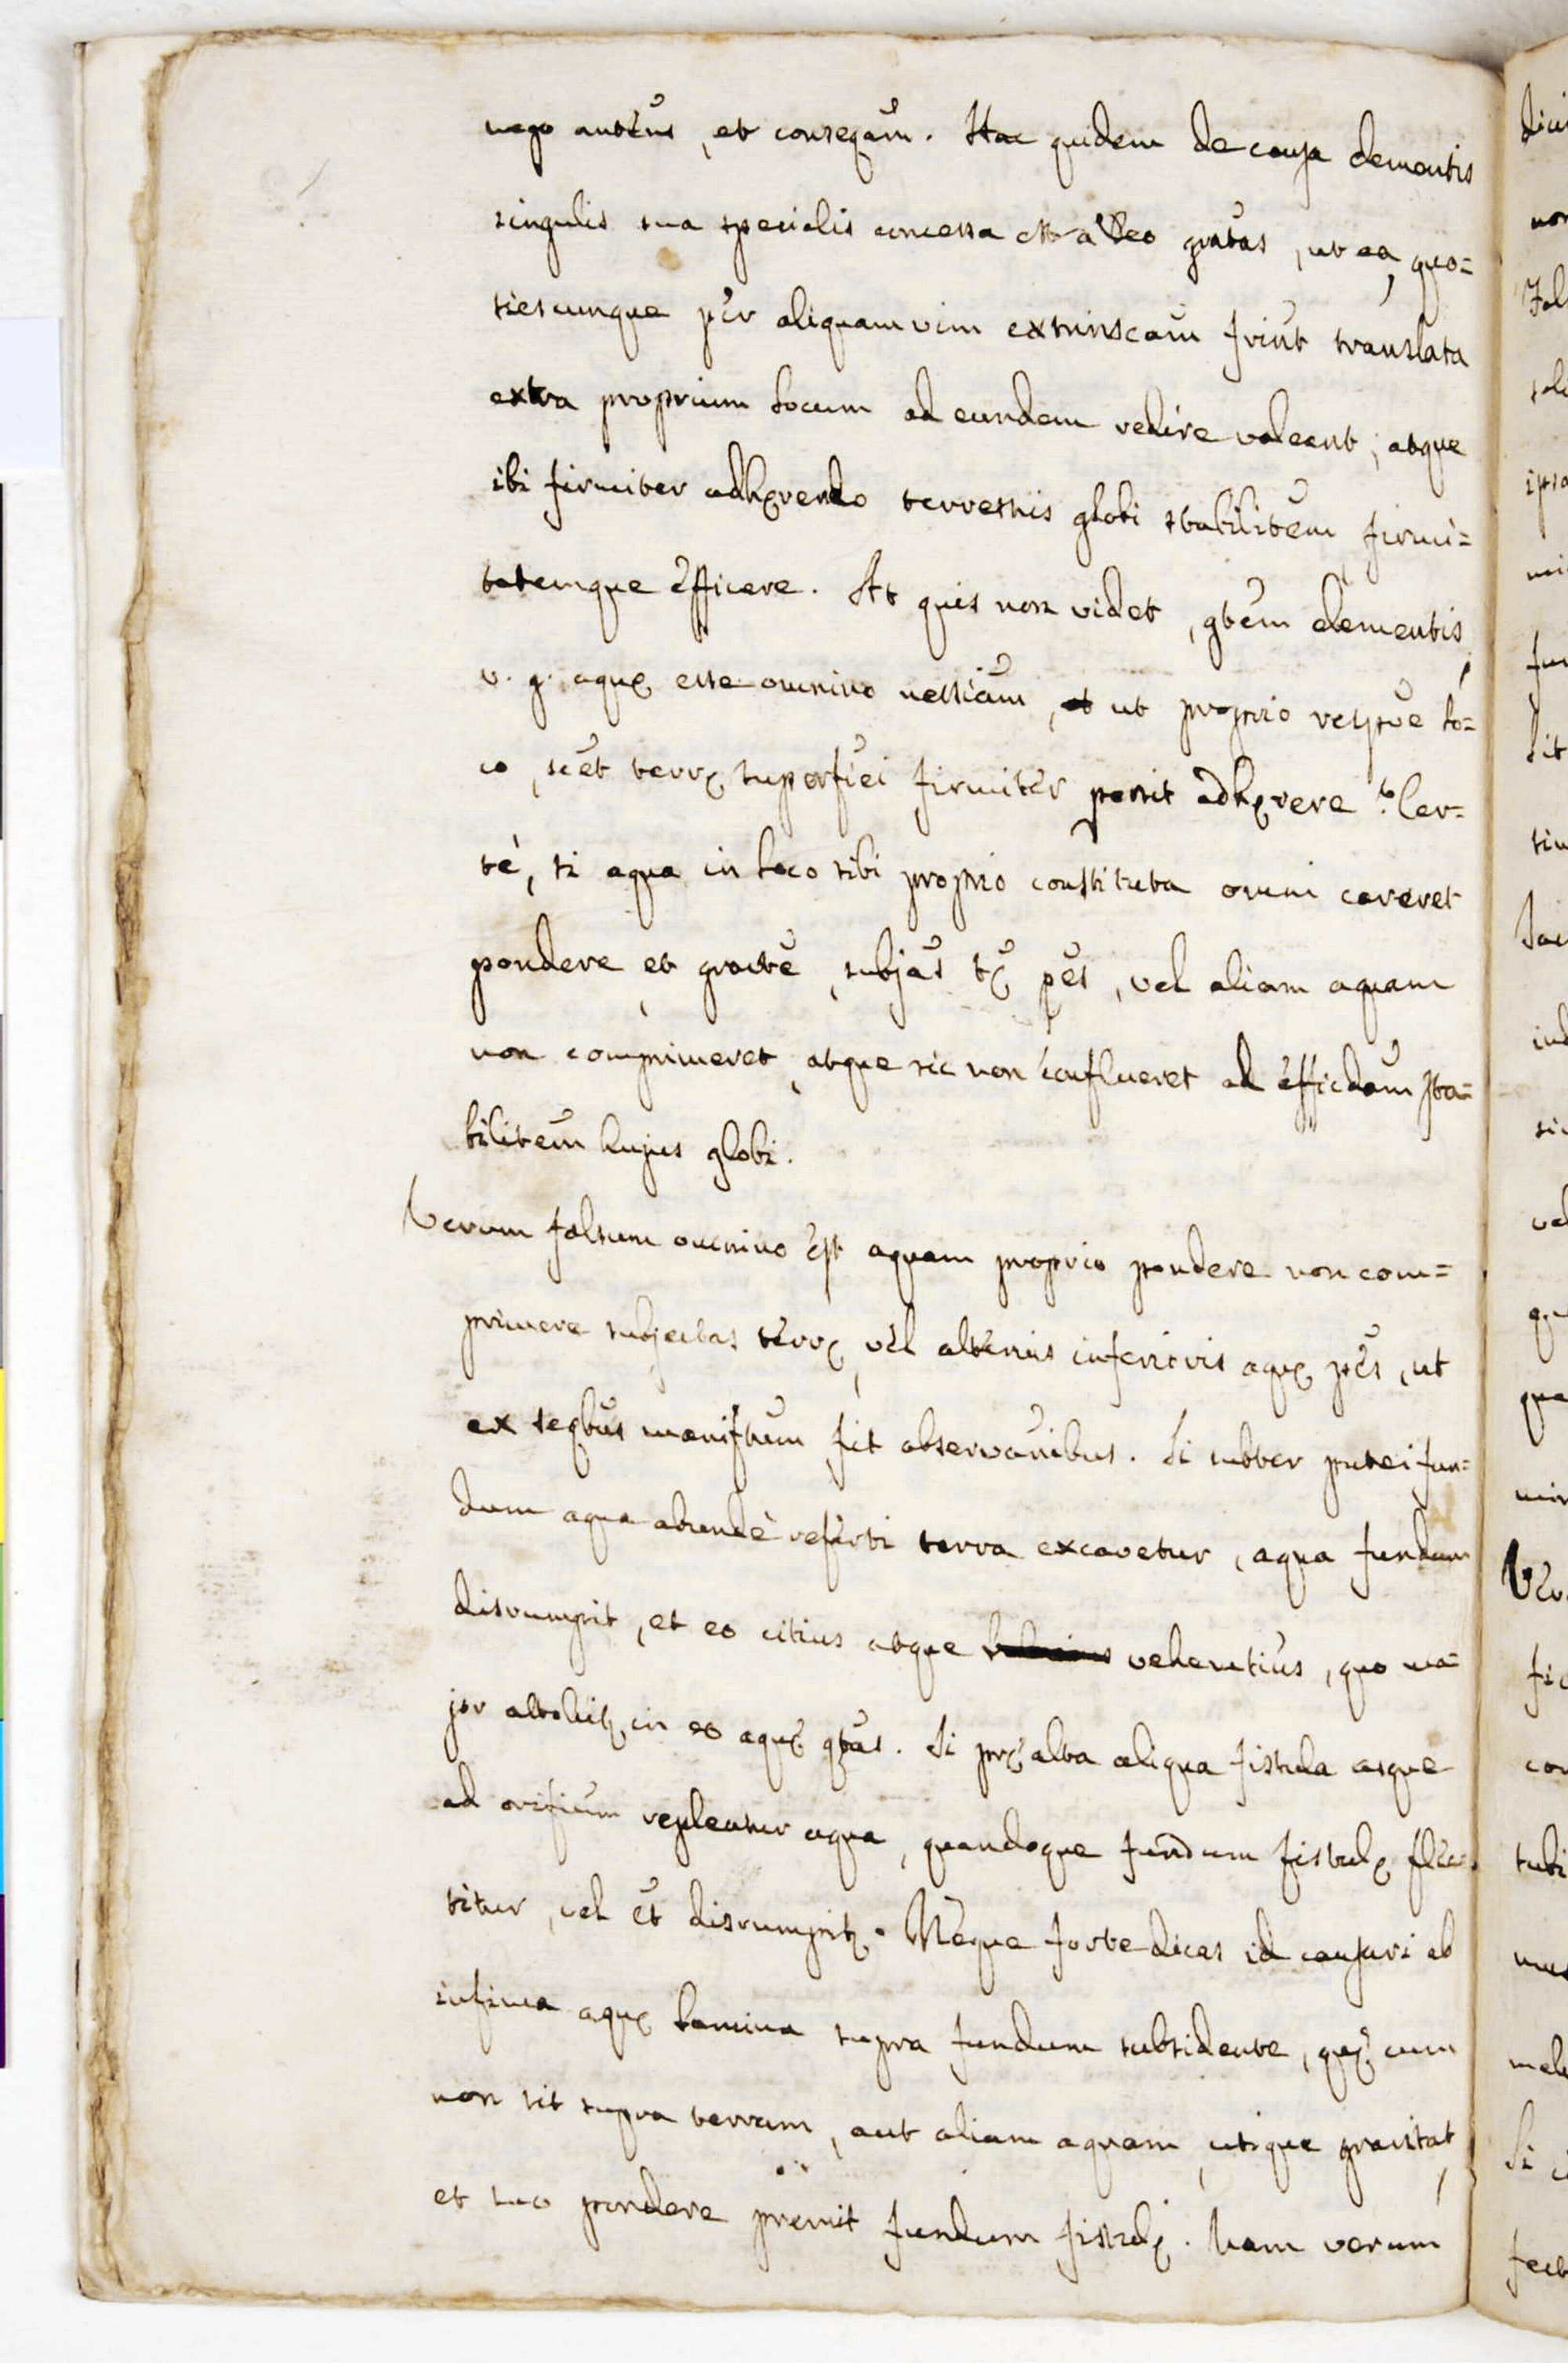 nego antẽns, et conseqãm. Hac quidem de causa elementis
singulis sua specialis concessa est a Deo gratas, ut ea, quo=
tiescumque per aliquam vim extrinscam friũt translata
extra proprium locum ad eundem redire valeant, atque
ibi firmiter adhęrendo terrestris globi stabilitẽm firmi=
tatemque efficere. At quis non videt, gtẽm elementis,
v. g. aquę esse omnino nessiãm, ut proprio respũe lo=
co, scẽt terrę superficiei firmiter possit adhęrere? Cer=
tè, si aqua in loco sibi proprio constituta omni careret
pondere, et gravitẽ, subjãs tę pẽs, vel aliam aquam
non comprimeret, atque sic non conflueret ad efficdãm sta=
bilitẽm hujus globi.
Verum falsum omnino est aquam proprio pondere non com=
primere subjectas terrę, vel alterius inferioris aquę pẽs, ut
ex seqbũs manifstũm fit observãnibus. Si subter putei fun=
dum aqua abundè referti terra excavetur, aqua fundum
disrumpit, et eo citius atque vehemtiũs, quo ma=
jor attollitę in eo aquę qtãs. Si pręalta aliqua fistula usque
ad orificium repleatur aqua, quandoque fundum fistulę flec=
titur, vel ẽt disrumpitę. Neque forte dicas id causari ab
infima aquę lamina supra fundum subsidente, quę cum
non sit supra terram, aut aliam aquam, utique gravitat,
et suo pondere premit fundum fistulę. Nam verum